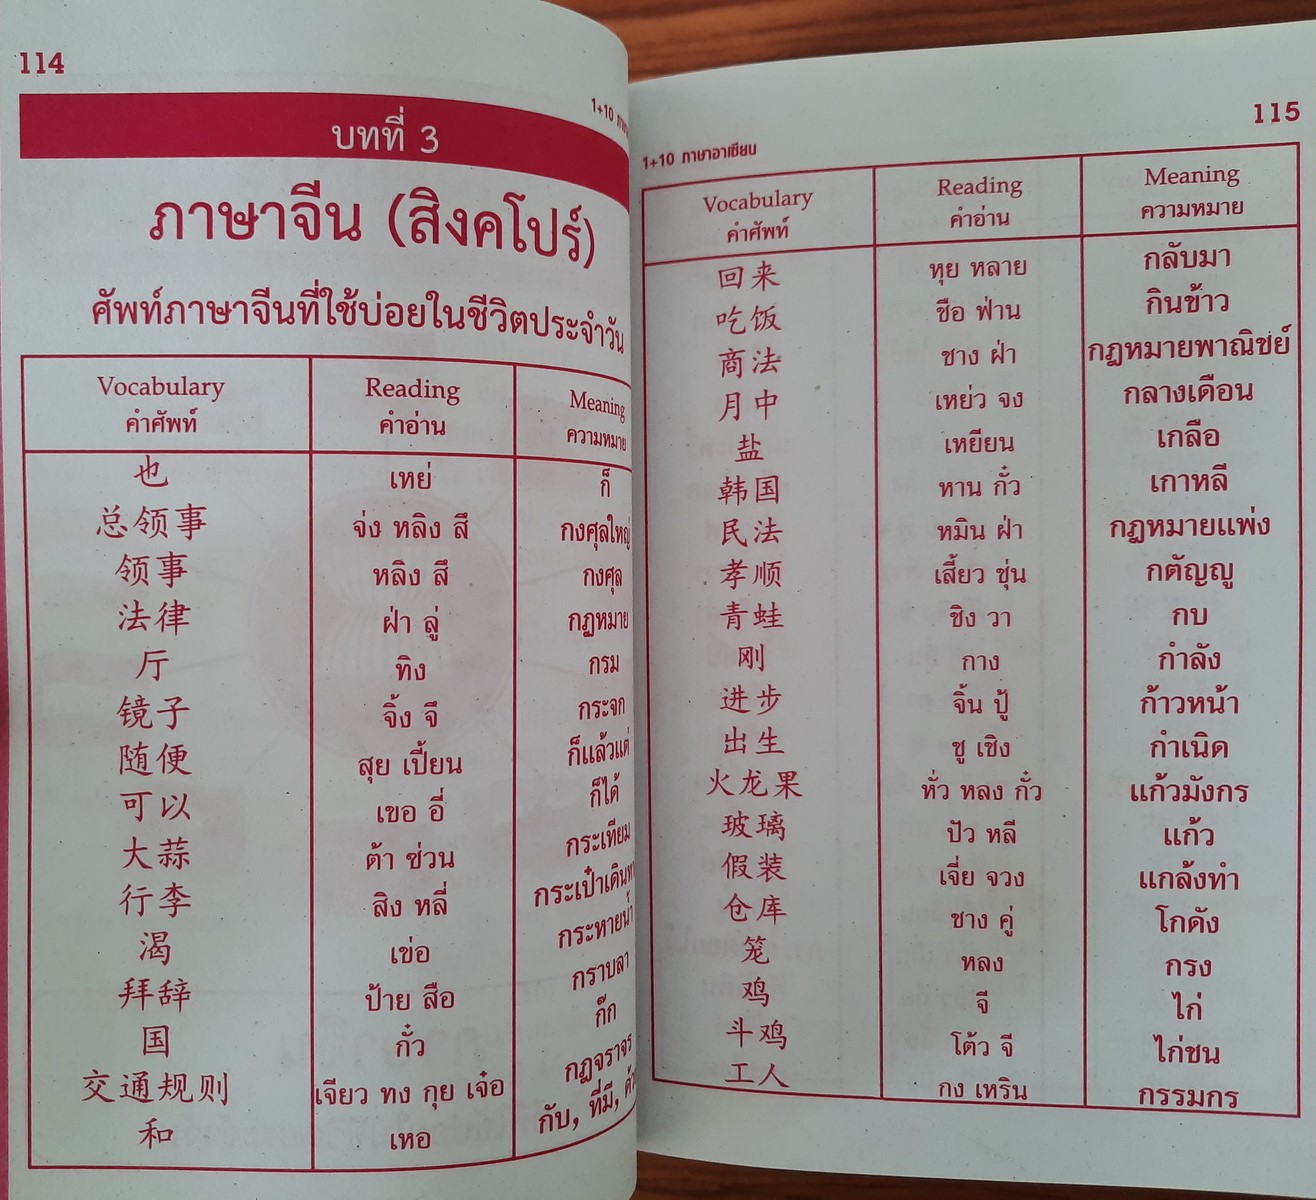 114
1+10
บทที่ 3
ภาษาจีน (สิงคโปร์)
ศัพท์ภาษาจีนที่ใช้บ่อยในชีวิตประจำวัน
Vocabulary Reading Meaning
คำศัพท์ คำอ่าน ความหมาย
也 เหย่ ก็
总领事 จ่ง หลิง สึ กงศุลใหญ่
领事 หลิง สึ กงศุล
法律 ฝ่า ลู่ กฎหมาย
厅 ทิง กรม
镜子 จิ้ง จึ กระจก
随便 สุย เปี้ยน ก็แล้วแต่
可以 เขอ อี่ ก็ได้
大蒜 ต้า ซ่วน กระเทียม
行李 สิง หลี่
渴 เข่อ กระหายน้ำ
拜辞 ป้าย สือ กราบลา
国 กั๋ว ก๊ก
交通规则 เจียว ทง กุย เจ๋อ กฎจราจร
和 เหอ กับ, ที่มี,
115
1+10 ภาษาอาเซียน
Vocabulary Reading Meaning
คำศัพท์ คำอ่าน ความหมาย
回来 หุย หลาย กลับมา
吃饭 ชือ ฟ่าน กินข้าว
商法 ชาง ฝ่า กฎหมายพาณิชย์
月中 เหย่ว จง กลางเดือน
盐 เหยียน เกลือ
韩国 หาน กั๋ว เกาหลี
民法 หมิน ฝ่า กฎหมายแพ่ง
孝顺 เสี้ยว ชุ่น กตัญญู
青蛙 ชิง วา กบ
刚 กาง กำลัง
进步 จิ้น ปู้ ก้าวหน้า
出生 ชู เชิง กำเนิด
火龙果 หั่ว หลง กั๋ว แก้วมังกร
玻璃 ปัว หลี แก้ว
假装 เจี่ย จวง แกล้งทำ
仓库 ชาง คู่ โกดัง
笼 หลง กรง
鸡 จี ไก่
斗鸡 โต้ว จี ไก่ชน
工人 กง เหริน กรรมกร